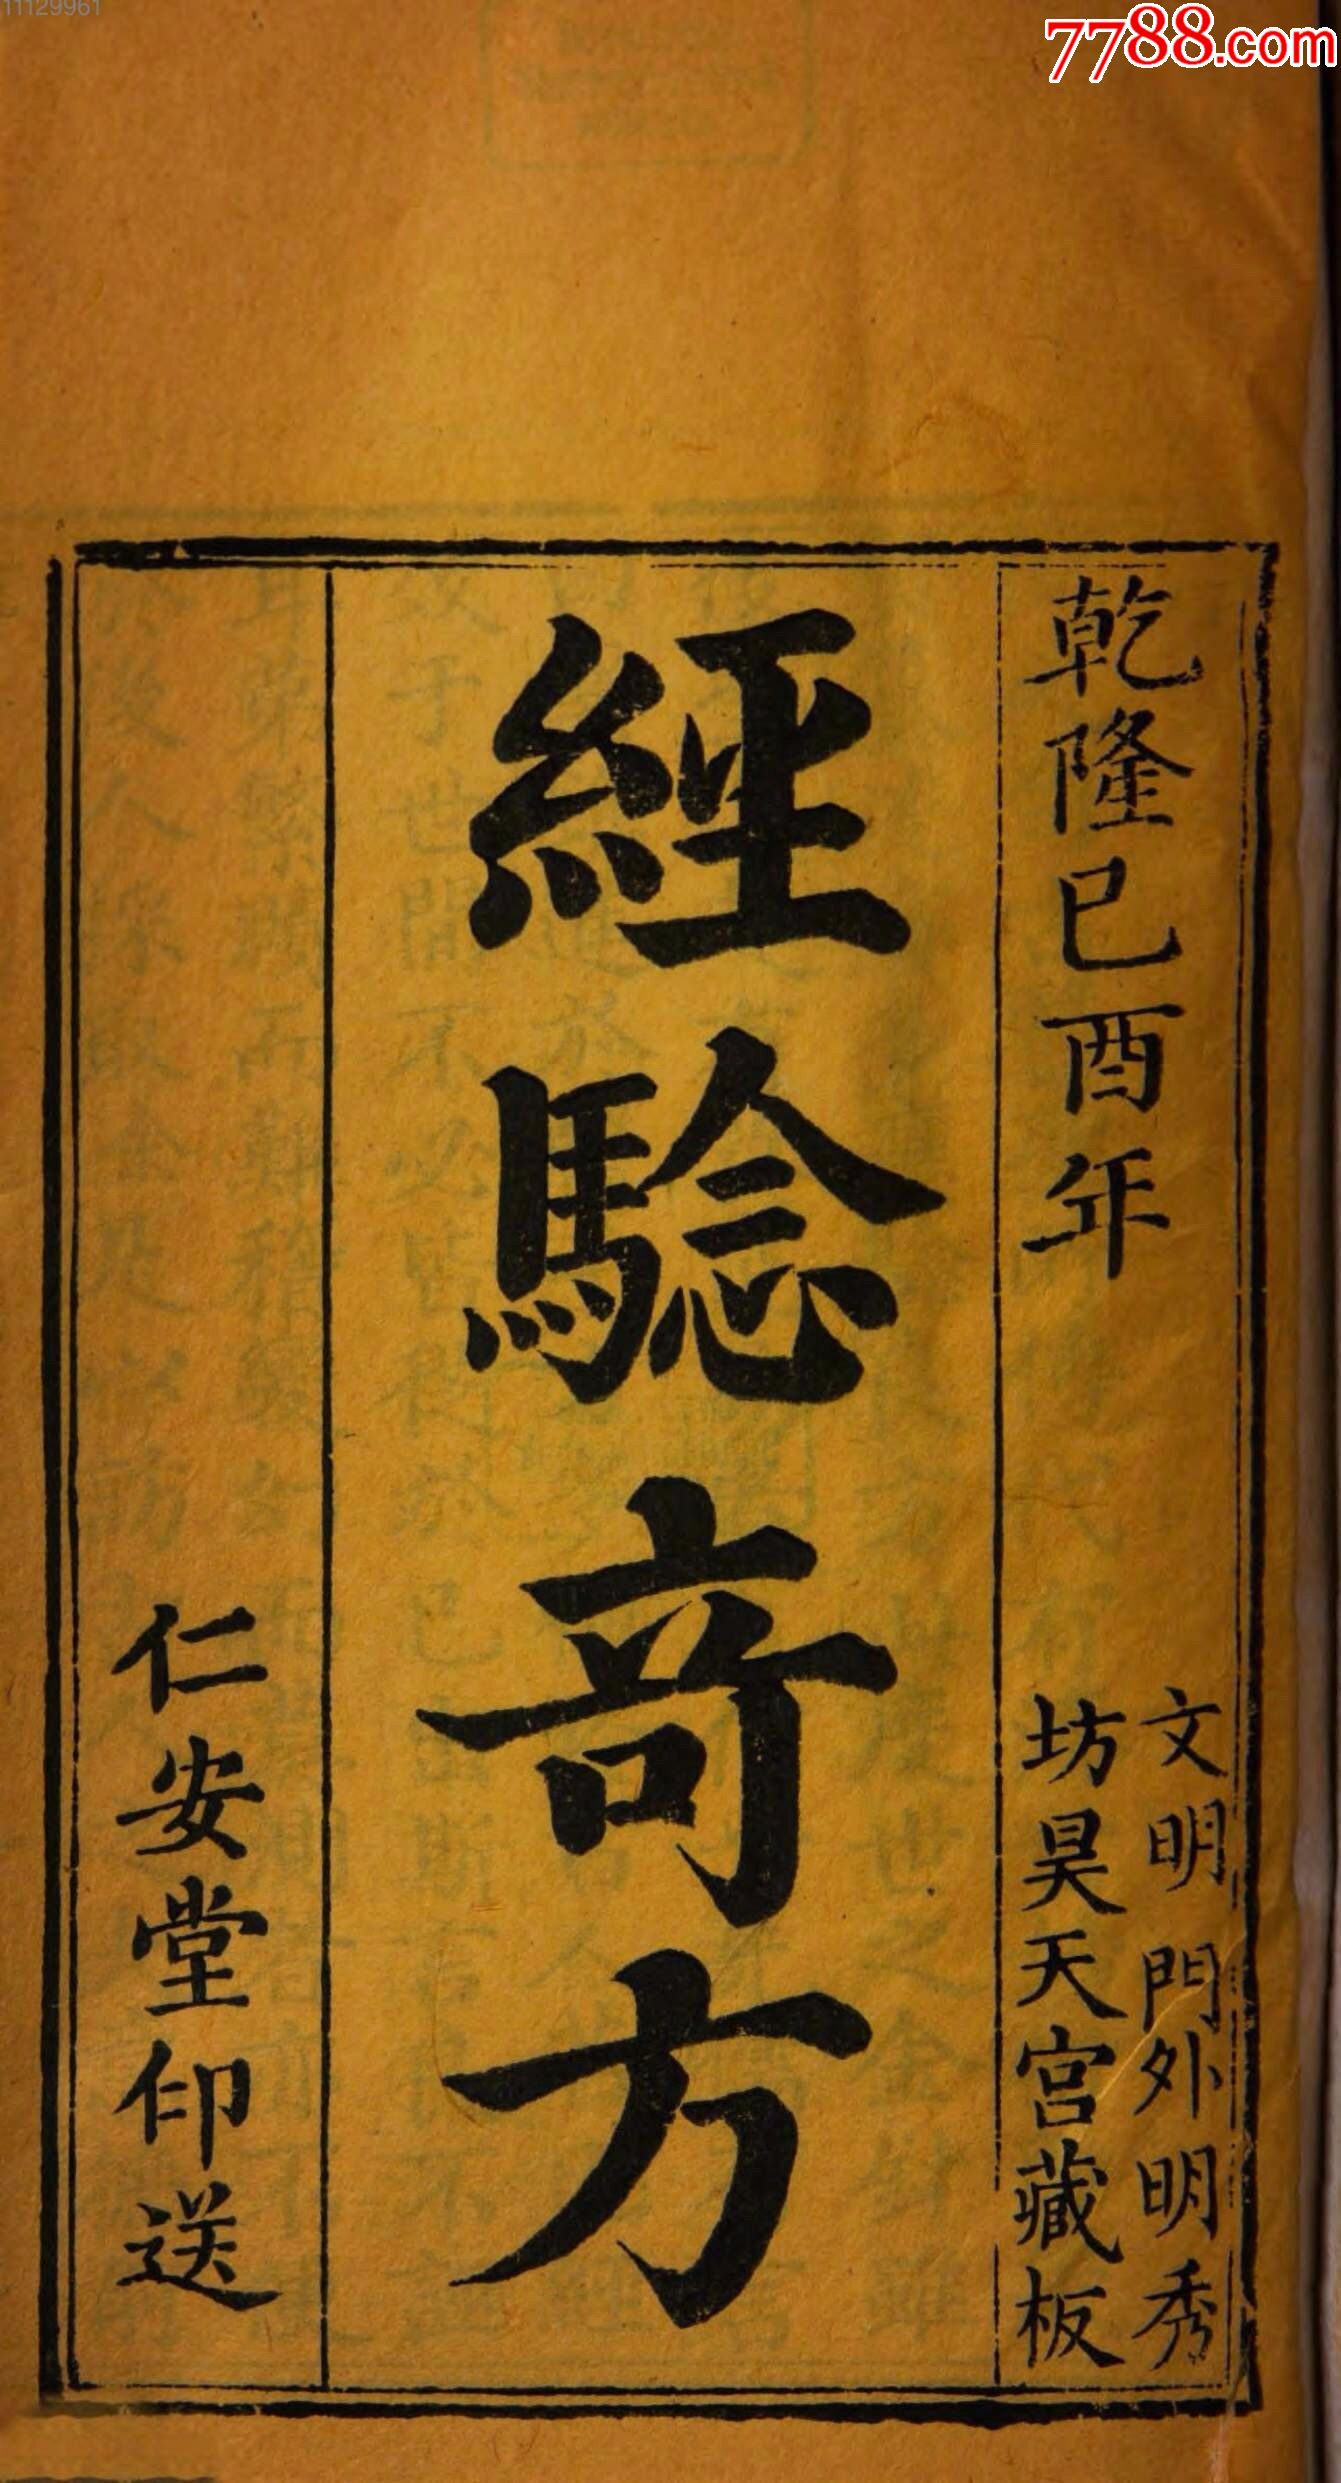 11129961
7788.com
乾隆己酉年
文明門外明秀
坊昊天宮藏板
經騐竒方
仁安堂印送